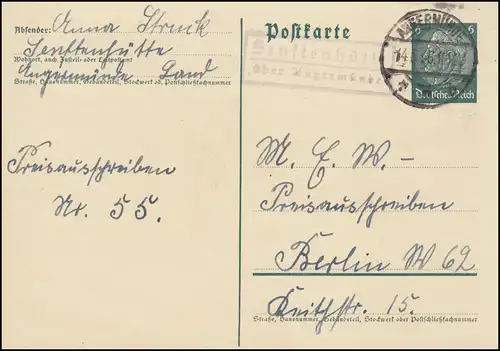 Absender: Anna Struck
Senftenhütte
Wohnort, auch Zustell- oder Leitpostamt
Angermünde Land
Straße, Hausnummer, Gebäudeteil, Stockwerk od. Postschließfachnummer
Preisausschreiben
Nr. 55.
Postkarte
Senftenhütte
über Angermünde
ANGERMÜNDE
14
6 6
Deutsches Reich
M. E. W.-
Preisausschreiben
Berlin W 62
Keithstr. 15.
Straße, Hausnummer, Gebäudeteil, Stockwerk oder Postschließfachnummer